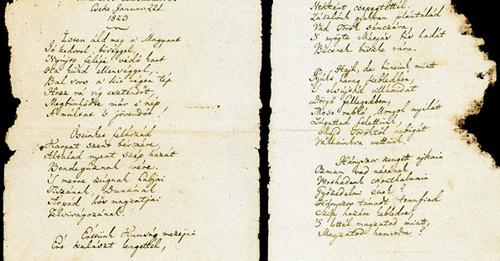 Cseke Januar. 22d.
1823
Isten áldd meg a' Magyart
Jó kedvvel, bőséggel,
Nyújts feléje védő kart
Ha küzd ellenséggel;
Bal sors a' kit régen tép
Hozz rá víg esztendőt,
Megbünhödte már e' nép
A' multat 's jövendőt!
Őseinket felhozád
Kárpát szent bérczére,
Általad nyert szép hazát
Bendegúznak vére.
'S merre zúgnak habjai
Tiszának, Dunának,
Árpád hős magzatjai
Felvirágozának.
Értünk Kunság mezein
Ért kalászt lengettél,
Nektárt csepegtettél.
Zászlónk gyakran plántálád
Vad Török sánczára,
'S nyögte Mátyás bús hadát
Bécsnek büszke vára.
Hajh, de bűneink miatt
Gyúlt harag kebledben,
'S elsújtád villámidat
Dörgő fellegedben,
Most rabló Mongol nyilát
Zúgattad felettünk,
Majd Töröktől rabigát
Vállainkra vettünk.
Hányszor zengett ajkain
Ozman vad népének
Vert hadunk csonthalmain
Győzedelmi ének!
Hányszor támadt tenfiad
Szép hazám kebledre,
'S lettél magzatod miatt,
Magzatod hamvedre?